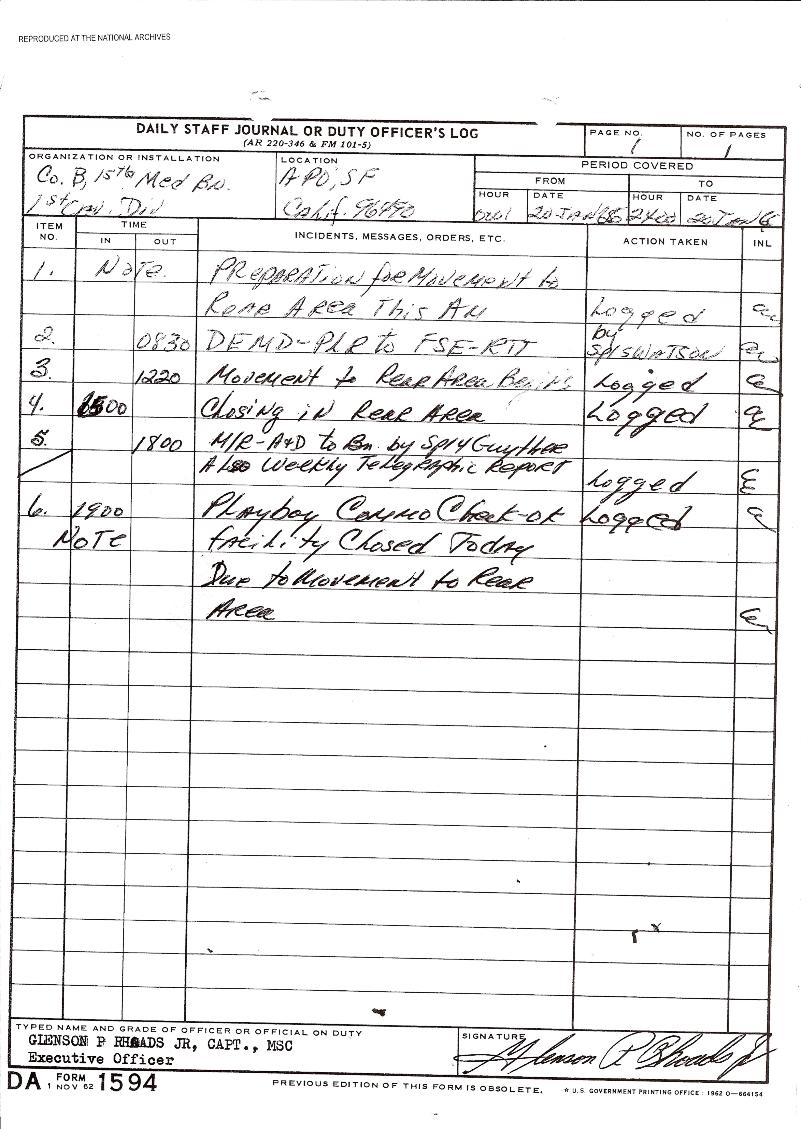 REPRODUCED AT THE NATIONAL ARCHIVES
DAILY STAFF JOURNAL OR DUTY OFFICER'S LOG
(AR 220-346 & FM 101-5)
PAGE NO.
1
NO. OF PAGES
1
ORGANIZATION OR INSTALLATION
Co. B, 15th Med Bn.
1st Cav. Div
LOCATION
APO, SF
Calif. 96490
PERIOD COVERED
FROM
TO
HOUR
0001
DATE
20 JAN
HOUR
2400
DATE
20 JAN
ITEM NO.
TIME
IN
OUT
INCIDENTS, MESSAGES, ORDERS, ETC.
ACTION TAKEN
INL
1. Note. Preparation for Movement to
Rear Area This AM Logged
2. 0830 DEMD-PLR to FSE-RTT by SP5 WATSON
3. 1220 Movement to Rear Area Begins Logged
4. 1500 Closing in Rear Area Logged
5. 1800 M/R-A&D to Bn. by Sp/4 Guyther
Also Weekly Telegraphic Report Logged
6. 1900 Playboy Commo Check-ok Logged
Note Facility Closed Today
Due to Movement to Rear
Area
TYPED NAME AND GRADE OF OFFICER OR OFFICIAL ON DUTY
GLENSON P RHOADS JR, CAPT., MSC
Executive Officer
SIGNATURE
Glenson P Rhoads Jr
DA FORM 1 NOV 62 1594
PREVIOUS EDITION OF THIS FORM IS OBSOLETE.
* U.S. GOVERNMENT PRINTING OFFICE : 1962 O—664154